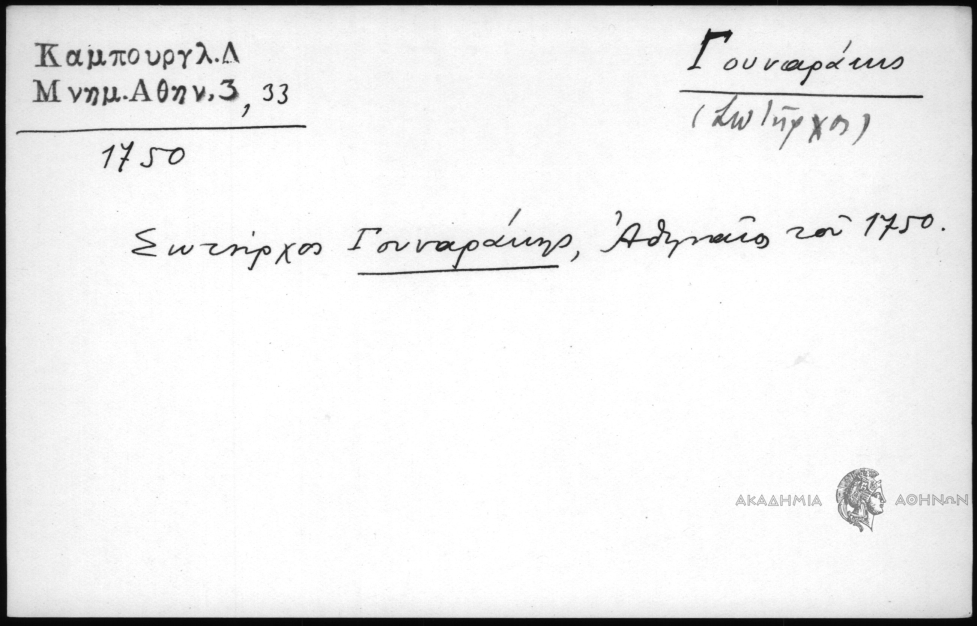 Καμπουργλ.Δ
Μνημ.Αθην.3, 33
1750
Γουναράκης
(Σωτήρχος)
Σωτήρχος Γουναράκης, Ἀθηναῖος τοῦ 1750.
ΑΚΑΔΗΜΙΑ ΑΘΗΝΩΝ